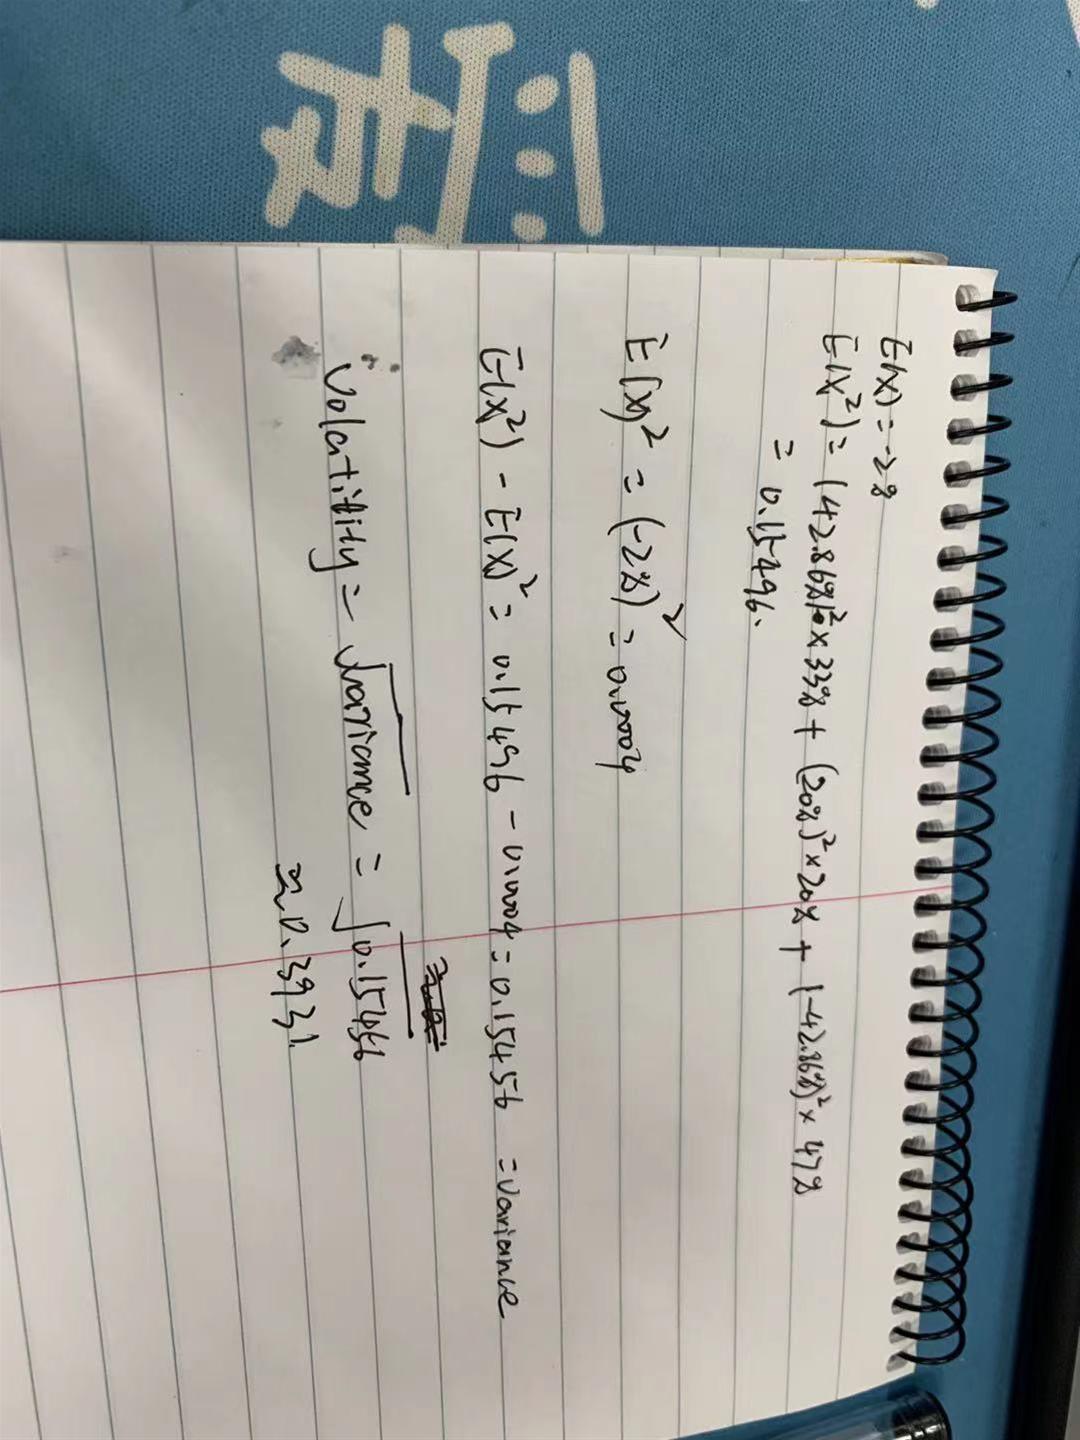 E(X) = -2%
E(X²) = (42.86%)² × 33% + (20%)² × 20% + (-42.86%)² × 47%
= 0.15496.
E(X)² = (-2%)² = 0.0004
E(X²) - E(X)² = 0.15496 - 0.0004 = 0.15456 = variance
Volatility = √variance = √0.15456
≈ 0.3931.